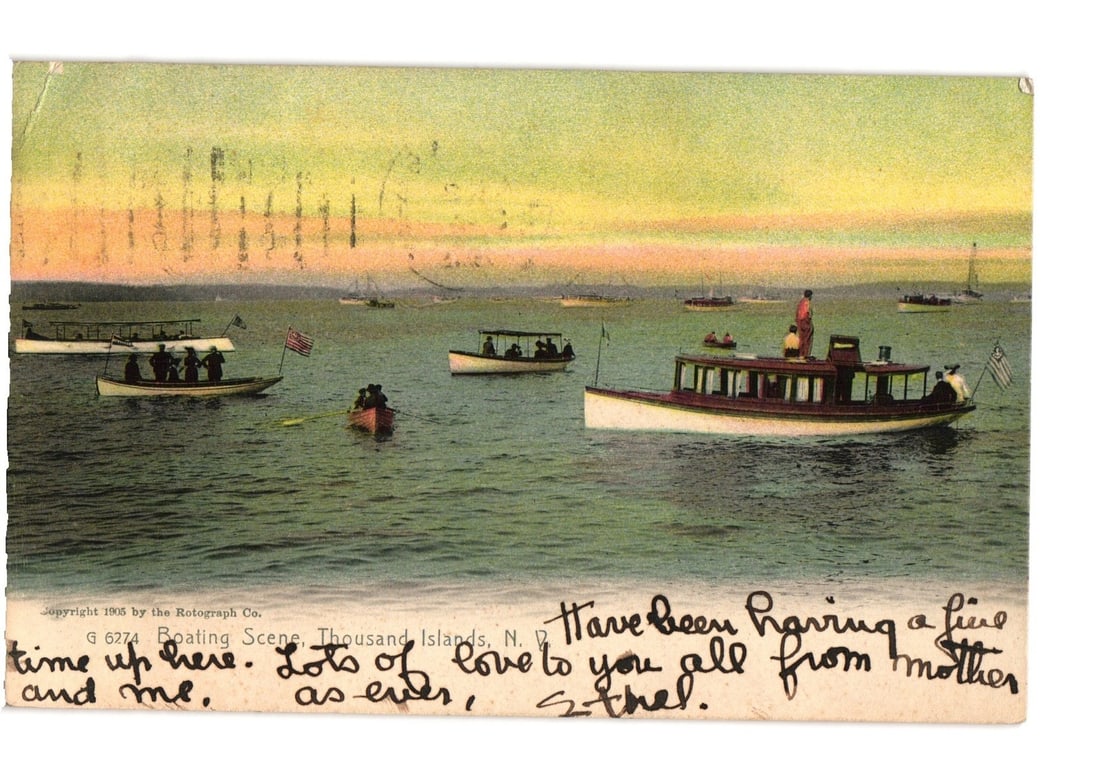 Copyright 1905 by the Rotograph Co.
G 6274 Boating Scene, Thousand Islands, N. Y.
Have been having a fine
time up here. Lots of love to you all from mother
and me, as ever, Ethel.